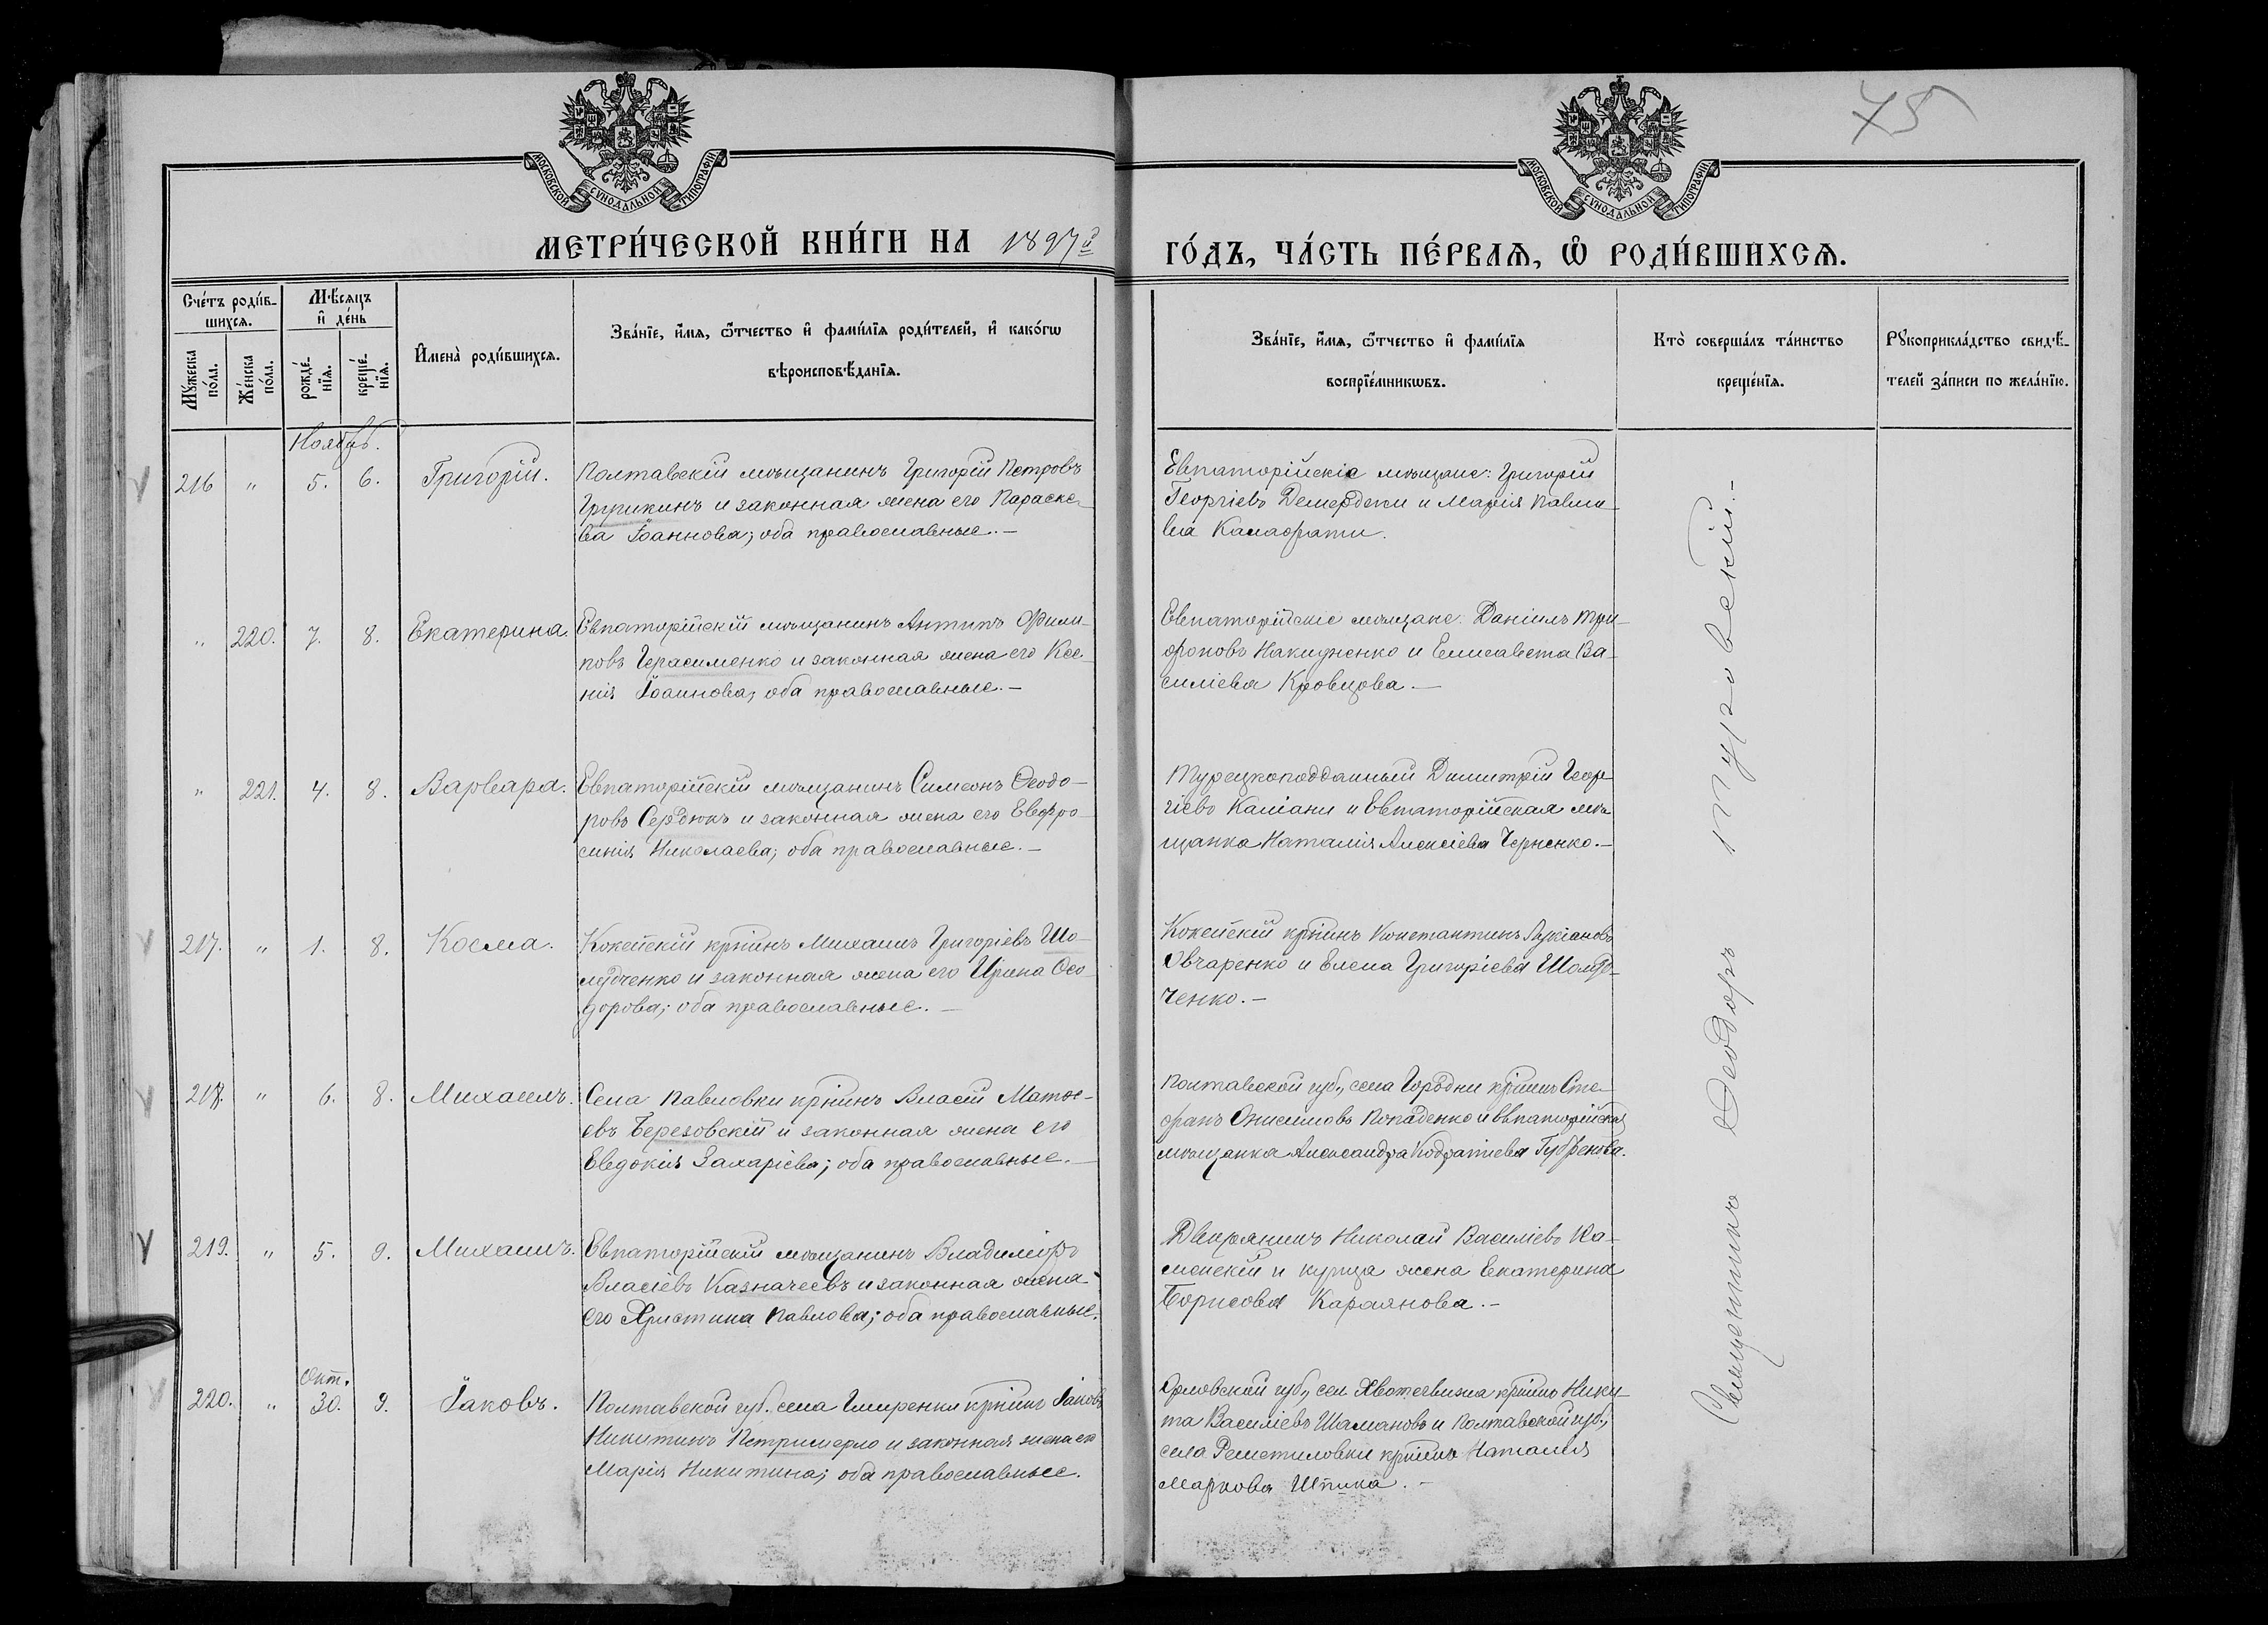 75
МОСКОВСКОЙ СѴНОДАЛЬНОЙ ТИПОГРАФІИ
МОСКОВСКОЙ СѴНОДАЛЬНОЙ ТИПОГРАФІИ
МЕТРИ́ЧЕСКОЙ КНИ́ГИ НА 1897й ГО́ДЪ, ЧА́СТЬ ПЕ́РВАѦ, Ѽ РОДИ́ВШИХСѦ.
Сче́тъ роди́в-
шихсѧ.
Мѣ́сѧцъ
и҆ де́нь
Мꙋ́жеска
по́ла.
Же́нска
по́ла.
рожде́-
нїѧ.
креще́-
нїѧ.
И҆мена̀ роди́вшихсѧ.
Зва́нїе, и҆́мѧ, ѻ҆́тчество и҆ фами́лїѧ роди́телей, и҆ како́гѡ
вѣроисповѣ́данїѧ.
Зва́нїе, и҆́мѧ, ѻ҆́тчество и҆ фами́лїѧ
воспрїе́мникѡвъ.
Кто̀ соверша́лъ та́инство
креще́нїѧ.
Рꙋкоприкла́дство свидѣ́-
телей за́писи по жела́нїю.
Ноябрь.
216 " 5. 6. Григорій.
Полтавскій мѣщанинъ Григорій Петровъ
и законная жена его Параске-
ва Іоаннова; оба православные.—
Евпаторійскіе мѣщане: Григорій
Георгіевъ Демерджи и Марія Павло-
ва Калафати.
" 220. 7. 8. Екатерина.
Евпаторійскій мѣщанинъ Антипъ Филип-
повъ Герасименко и законная жена его Ксе-
нія Іоаннова; оба православные.—
Евпаторійскіе мѣщане: Даніилъ Три-
фоновъ Накидненко и Елисавета Ва-
силіева Кровцова.—
" 221. 4. 8. Варвара.
Евпаторійскій мѣщанинъ Симеонъ Ѳеодо-
ровъ Сердюкъ и законная жена его Евфро-
синія Николаева; оба православные.—
Турецкоподданный Димитрій Геор-
гіевъ Каліани и Евпаторійская мѣ-
щанка Наталія Алексіева Черненко.—
217. " 1. 8. Косма.
Кокейскій кр–нинъ Михаилъ Григоріевъ Шо-
лудченко и законная жена его Ирина Ѳео-
дорова; оба православные.—
Кокейскій кр–нинъ Константинъ Лукіановъ
Овчаренко и Елена Григоріева Шолуд-
ченко.—
218. " 6. 8. Михаилъ.
Села Павловки кр–нинъ Власій Матѳе-
евъ Березовскій и законная жена его
Евдокія Захаріева; оба православные.—
Полтавской губ., села Городни кр–нинъ Сте-
фанъ Онисимовъ Попаденко и евпаторійская
мѣщанка Александра Кодратіева
219. " 5. 9. Михаилъ.
Евпаторійскій мѣщанинъ Владиміръ
Власіевъ Казначеевъ и законная жена
его Христина Павлова; оба православные.
Дворянинъ Николай Василіевъ Ка-
менскій и купца жена Екатерина
Борисова Караянова.—
Окт.
220. " 30. 9. Іаковъ.
Полтавской губ., села кр–нинъ Іаковъ
Никитинъ и законная жена его
Марія Никитина; оба православные.
Орловской губ., сел кр–нинъ Ники-
та Василіевъ Шамановъ и Полтавской губ.,
села Решетиловки кр–нка Наталія
Маркова Шпика.—
Священникъ Ѳеодоръ Туровскій.—